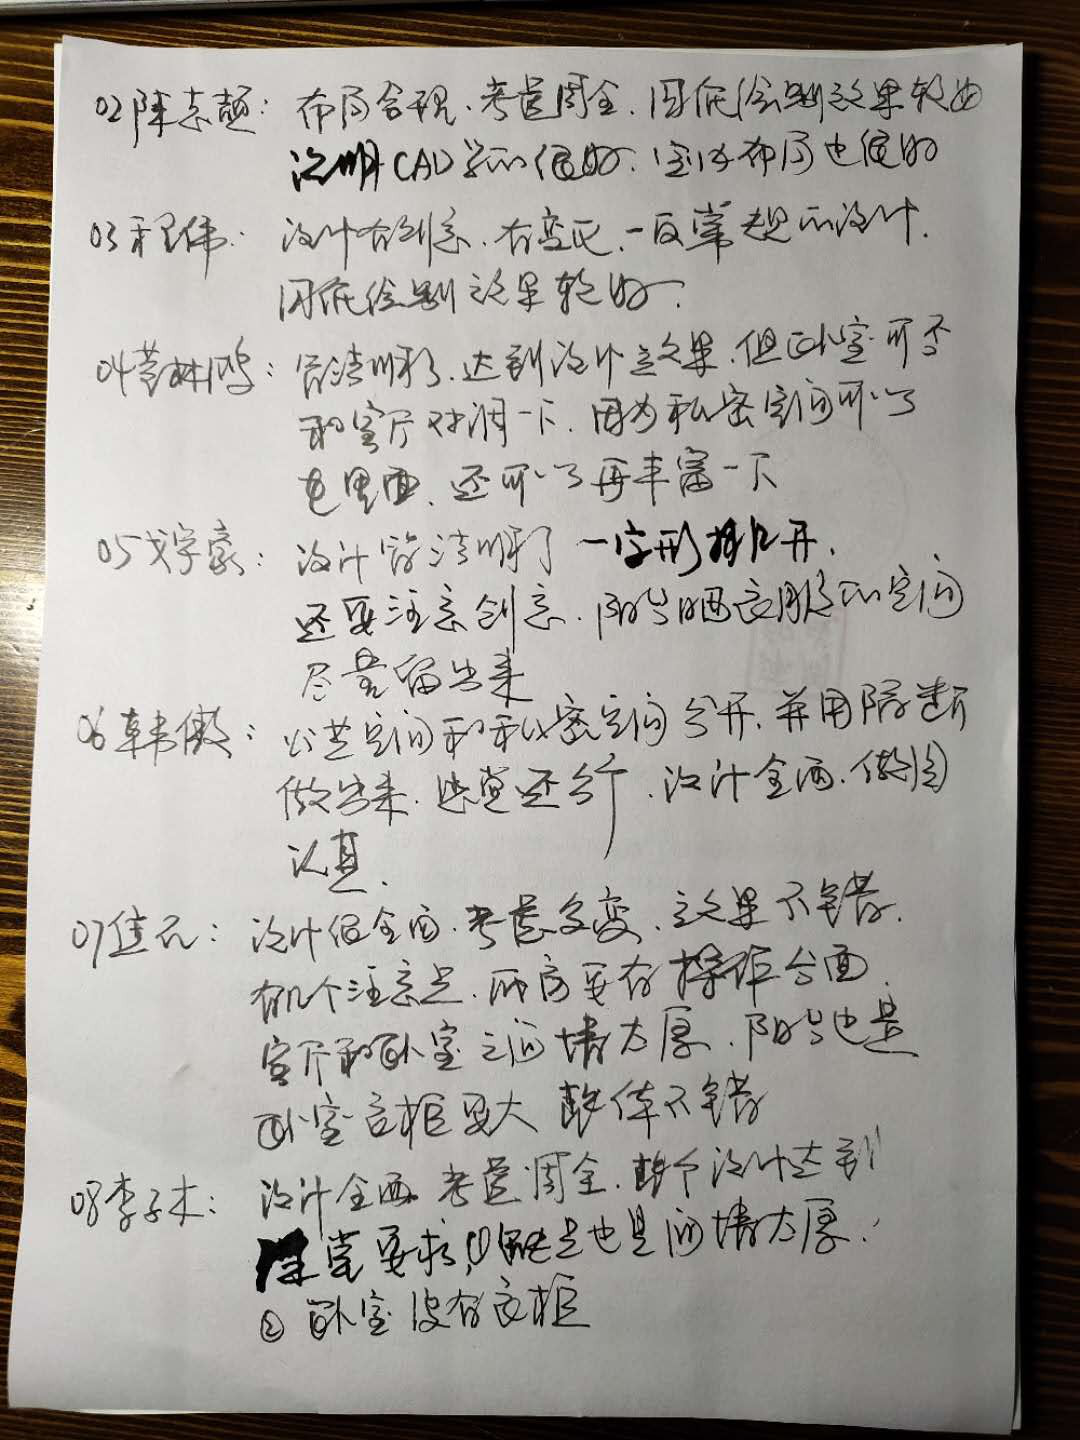 02陈志颖：布局合理、考虑周全、图纸绘制效果较好
说明CAD学的很好、室内布局也很好
03程伟：设计有创意、有变化、一反常规的设计、
图纸绘制效果较好、
04 林鸿：简洁明了、达到设计效果、但卧室可否
和客厅对调一下、因为私密空间可以了
在里面、还可以了再丰富一下
05 宇豪：设计简洁明了 一字形排开、
还要注意创意、阳台晒衣服的空间
尽量留出来
06韩傲：公共空间和私密空间分开、并用隔断
做出来、感觉还行、设计全面、做图
认真、
07佳元：设计很全面、考虑多变、效果不错、
有几个注意点、厨房要有操作台面、
客厅和卧室之间墙太厚、阳台也是
卧室衣柜要大 整体不错
08李子木：设计全面 考虑周全、整个设计达到
课堂要求，①缺点也是间墙太厚、
② 卧室没有衣柜